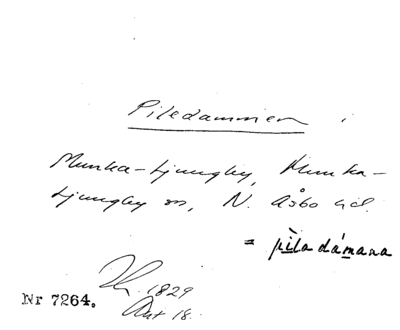 Piledammen i
Munka-Ljungby, Munka-
Ljungby sn, N. Åsbo hd.
= pìladámana
1829
Nr 7264.
Akt 18.